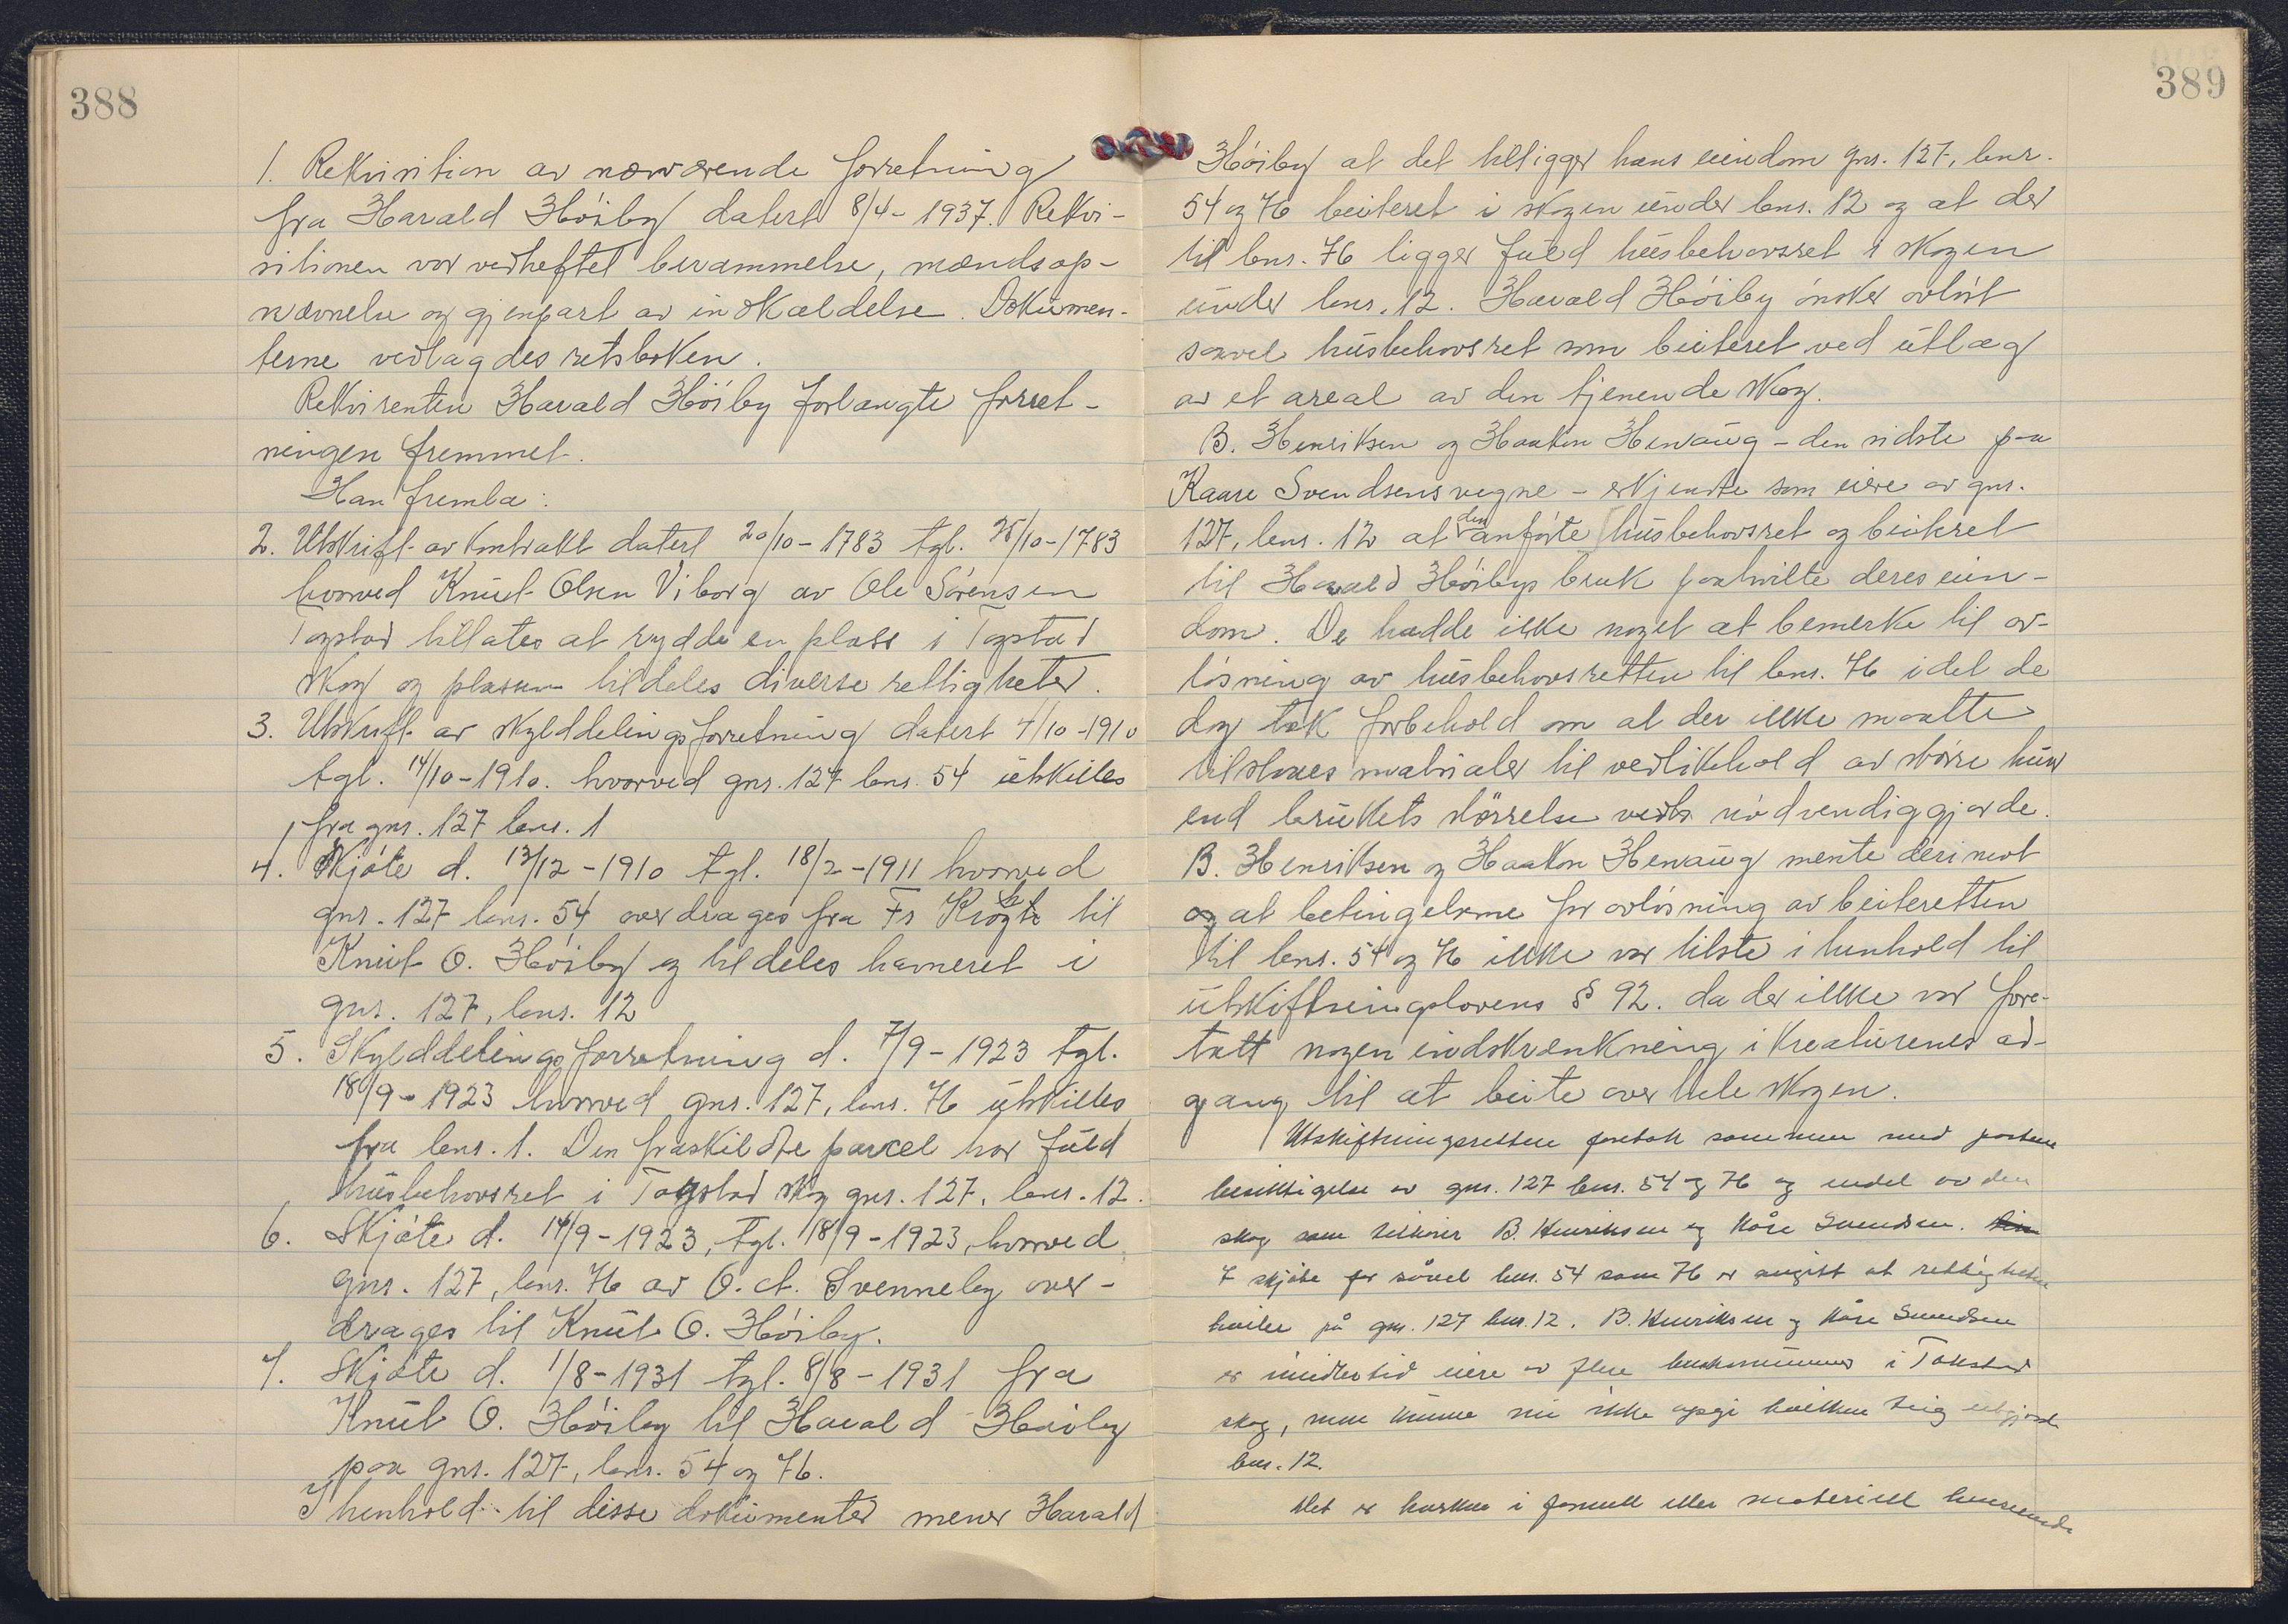 388
1. Rekvisition av nærværende forretning
fra Harald Höiby datert 8/4-1937. Rekvi-
sitionen var vedheftet berammelse, mændsop-
nævnelse og gjenpart av indkaldelse. Dokumen-
terne vedlagdes retsboken.
Rekvirenten Harald Höiby forlangte forret-
ningen fremmet.
Han fremla:
2. Utskrift av kontrakt datert 20/10-1783 tgl. 25/10-1783
hvorved Knut Olsen Viborg av Ole Sörensen
Togstad tillates at rydde en plass i Togstad
skog og plassen tildeles diverse rettigheter.
3. Utskrift av skylddelingsforretning datert 4/10-1910
tgl. 14/10-1910. hvorved gnr. 127 bnr. 54 utskilles
fra gnr. 127 bnr. 1
4. Skjöte d. 13/12-1910 tgl. 18/2-1911 hvorved
gnr. 127 bnr. 54 overdrages fra Fr til
Knut O. Höiby og tildeles havneret i
gnr. 127, bnr. 12
5. Skylddelingsforretning d. 7/9-1923 tgl.
18/9-1923 hvorved gnr. 127, bnr. 76 utskilles
fra bnr. 1. Den fraskildte parcel har fuld
husbehovsret i Togstad skog gnr. 127, bnr. 12.
6. Skjöte d. 14/9-1923, tgl. 18/9-1923, hvorved
gnr. 127, bnr. 76 av O. A. Svenneby over-
drages til Knut O. Höiby.
7. Skjöte d. 1/8-1931 tgl. 8/8-1931 fra
Knut O. Höiby til Harald Höiby
paa gnr. 127, bnr. 54 og 76.
I henhold til disse dokumenter mener Harald
389
Höiby at det tilligger hans eiendom gnr. 127, bnr.
54 og 76 beiteret i skogen under bnr. 12 og at der
til bnr. 76 ligger fuld husbehovsret i skogen
under bnr. 12. Harald Höiby önsker avlöst
saavel husbehovsret som beiteret ved utlæg
av et areal av den tjenende skog.
B. Henriksen og Haakon Hewaug - den sidste paa
Kaare Svendsens vegne - erkjendte som eiere av gnr.
127, bnr. 12 at den anförte husbehovsret og beiteret
til Harald Höibys bruk paahvilte deres eien-
dom. De hadde ikke noget at bemerke til av-
lösning av husbehovsretten til bnr. 76 idet de
dog tok forbehold om at der ikke maatte
tilstaaes materialer til vedlikehold av större hus
end brukets störrelse nödvendiggjorde.
B. Henriksen og Haakon Hewaug mente derimot
og at betingelserne for avlösning av beiteretten
til bnr. 54 og 76 ikke var tilstede i henhold til
utskiftningslovens § 92. da der ikke var fore-
tatt nogen indskrænkning i kreaturenes ad-
gang til at beite over hele skogen.
Utskiftningsretten foretok sammen med partene
besiktigelse av gnr. 127 bnr. 54 og 76 og endel av den
skog som tilhörer B. Henriksen og Kåre Svendsen.
I skjöte for såvel bnr. 54 som 76 er angitt at rettighetene
hviler på gnr. 127 bnr. 12. B. Henriksen og Kåre Svendsen
er imidlertid eiere av flere bruksnummer i Tokstad
skog, men kunne nu ikke opgi hvilken teig utgjorde
bnr. 12.
Det er hverken i formell eller materiell henseende